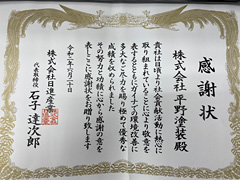 感謝状
株式会社 平野塗装 殿
貴社は日頃より社会貢献活動に熱心に
取り組まれていることに心より敬意を
表するとともにガイナでの環境改善に
多大なご尽力を賜り極めて優秀な
成績を収められました
その努力と功績に心から感謝の意を
表しここに感謝状をお贈り致します
令和二年六月二十日
株式会社日進産業
代表取締役 石子達次郎